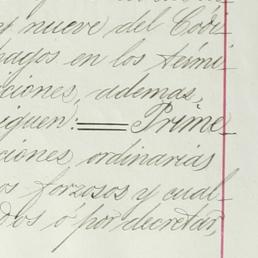 y nueve del Códi
pagos en los térmi
ciones, además,
iguen: == Prime
ciones ordinarias
os forzosos y cual-
dos ó por decretar,